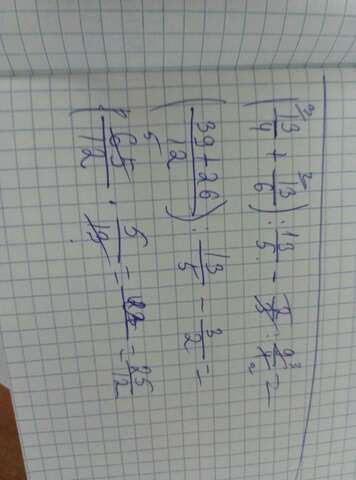 (13/4 + 13/6) : 13/5 - 2/3 · 9/4 =
(39 + 26/12) : 13/5 - 3/2 =
65/12 · 5/13 = = 25/12